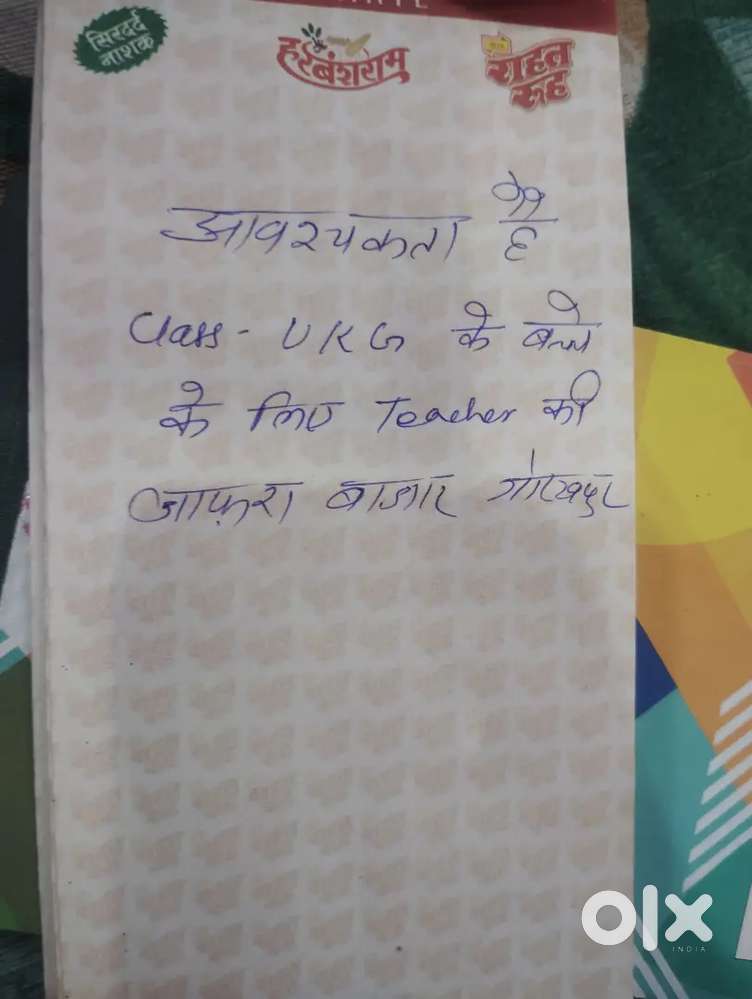 सिरदर्द
नाशक
हरबंशराम
राहत
रूह
आवश्यकता है
Class - UKG के बच्चे
के लिए Teacher की
जाफ़रा बाजार गोरखपुर
olx
INDIA